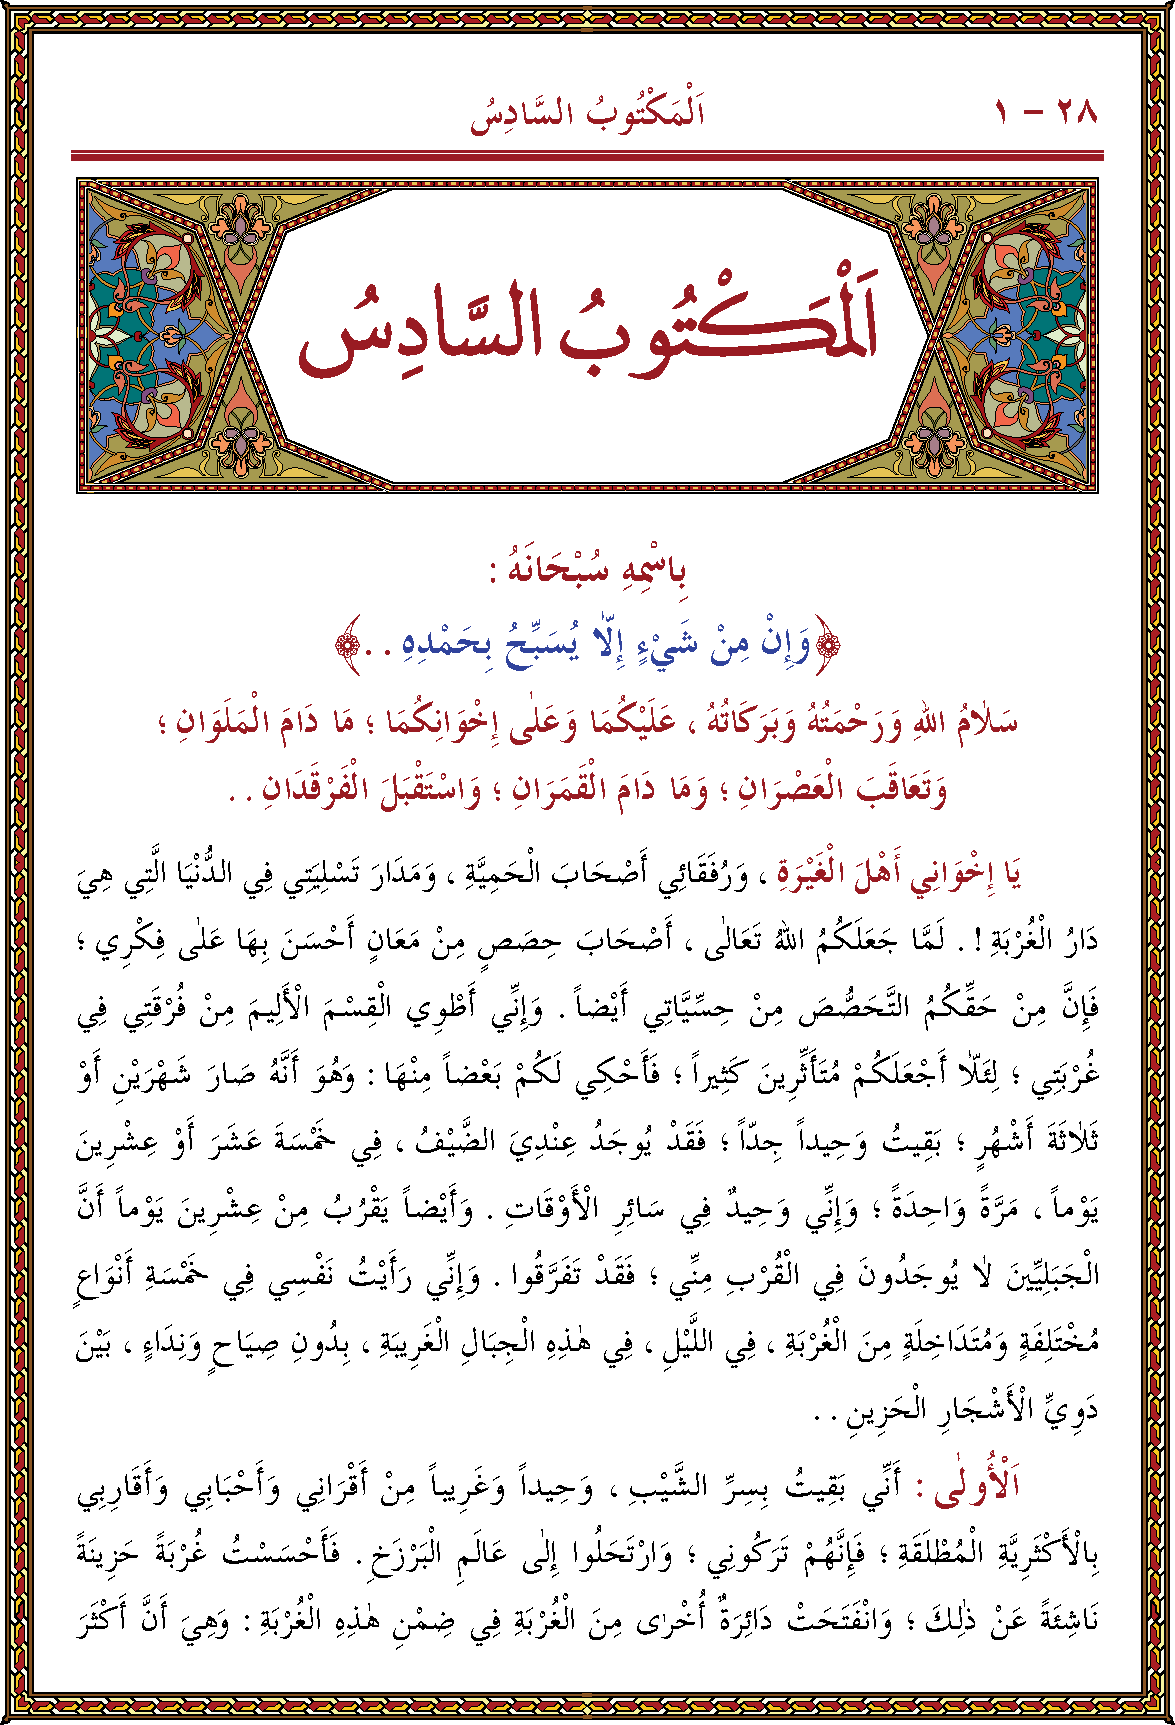 ٢٨ – ١ اَلْمَكْتُوبُ السَّادِسُ
اَلْمَكْتُوبُ السَّادِسُ
بِاسْمِهِ سُبْحَانَهُ :
﴿وَإِنْ مِنْ شَيْءٍ إِلَّا يُسَبِّحُ بِحَمْدِهِ . .﴾
سَلَامُ اللهِ وَرَحْمَتُهُ وَبَرَكَاتُهُ ، عَلَيْكُمَا وَعَلٰى إِخْوَانِكُمَا ؛ مَا دَامَ الْمَلَوَانِ ؛
وَتَعَاقَبَ الْعَصْرَانِ ؛ وَمَا دَامَ الْقَمَرَانِ ؛ وَاسْتَقْبَلَ الْفَرْقَدَانِ . .
يَا إِخْوَانِي أَهْلَ الْغَيْرَةِ ، وَرُفَقَائِي أَصْحَابَ الْحَمِيَّةِ ، وَمَدَارَ تَسْلِيَتِي فِي الدُّنْيَا الَّتِي هِيَ
دَارُ الْغُرْبَةِ ! . لَمَّا جَعَلَكُمُ اللهُ تَعَالٰى ، أَصْحَابَ حِصَصٍ مِنْ مَعَانٍ أَحْسَنَ بِهَا عَلٰى فِكْرِي ؛
فَإِنَّ مِنْ حَقِّكُمُ التَّحَصُّصَ مِنْ حِسِّيَّاتِي أَيْضاً . وَإِنِّي أَطْوِي الْقِسْمَ الْأَلِيمَ مِنْ فُرْقَتِي فِي
غُرْبَتِي ؛ لِئَلَّا أَجْعَلَكُمْ مُتَأَثِّرِينَ كَثِيراً ؛ فَأَحْكِي لَكُمْ بَعْضاً مِنْهَا : وَهُوَ أَنَّهُ صَارَ شَهْرَيْنِ أَوْ
ثَلَاثَةَ أَشْهُرٍ ؛ بَقِيتُ وَحِيداً جِدّاً ؛ فَقَدْ يُوجَدُ عِنْدِيَ الضَّيْفُ ، فِي خَمْسَةَ عَشَرَ أَوْ عِشْرِينَ
يَوْماً ، مَرَّةً وَاحِدَةً ؛ وَإِنِّي وَحِيدٌ فِي سَائِرِ الْأَوْقَاتِ . وَأَيْضاً يَقْرُبُ مِنْ عِشْرِينَ يَوْماً أَنَّ
الْجَبَلِيِّينَ لَا يُوجَدُونَ فِي الْقُرْبِ مِنِّي ؛ فَقَدْ تَفَرَّقُوا . وَإِنِّي رَأَيْتُ نَفْسِي فِي خَمْسَةِ أَنْوَاعٍ
مُخْتَلِفَةٍ وَمُتَدَاخِلَةٍ مِنَ الْغُرْبَةِ ، فِي اللَّيْلِ ، فِي هٰذِهِ الْجِبَالِ الْغَرِيبَةِ ، بِدُونِ صِيَاحٍ وَنِدَاءٍ ، بَيْنَ
دَوِيِّ الْأَشْجَارِ الْحَزِينِ . .
اَلْأُولٰى : أَنِّي بَقِيتُ بِسِرِّ الشَّيْبِ ، وَحِيداً وَغَرِيباً مِنْ أَقْرَانِي وَأَحْبَابِي وَأَقَارِبِي
بِالْأَكْثَرِيَّةِ الْمُطْلَقَةِ ؛ فَإِنَّهُمْ تَرَكُونِي ؛ وَارْتَحَلُوا إِلٰى عَالَمِ الْبَرْزَخِ . فَأَحْسَسْتُ غُرْبَةً حَزِينَةً
نَاشِئَةً عَنْ ذٰلِكَ ؛ وَانْفَتَحَتْ دَائِرَةٌ أُخْرٰى مِنَ الْغُرْبَةِ فِي ضِمْنِ هٰذِهِ الْغُرْبَةِ : وَهِيَ أَنَّ أَكْثَرَ